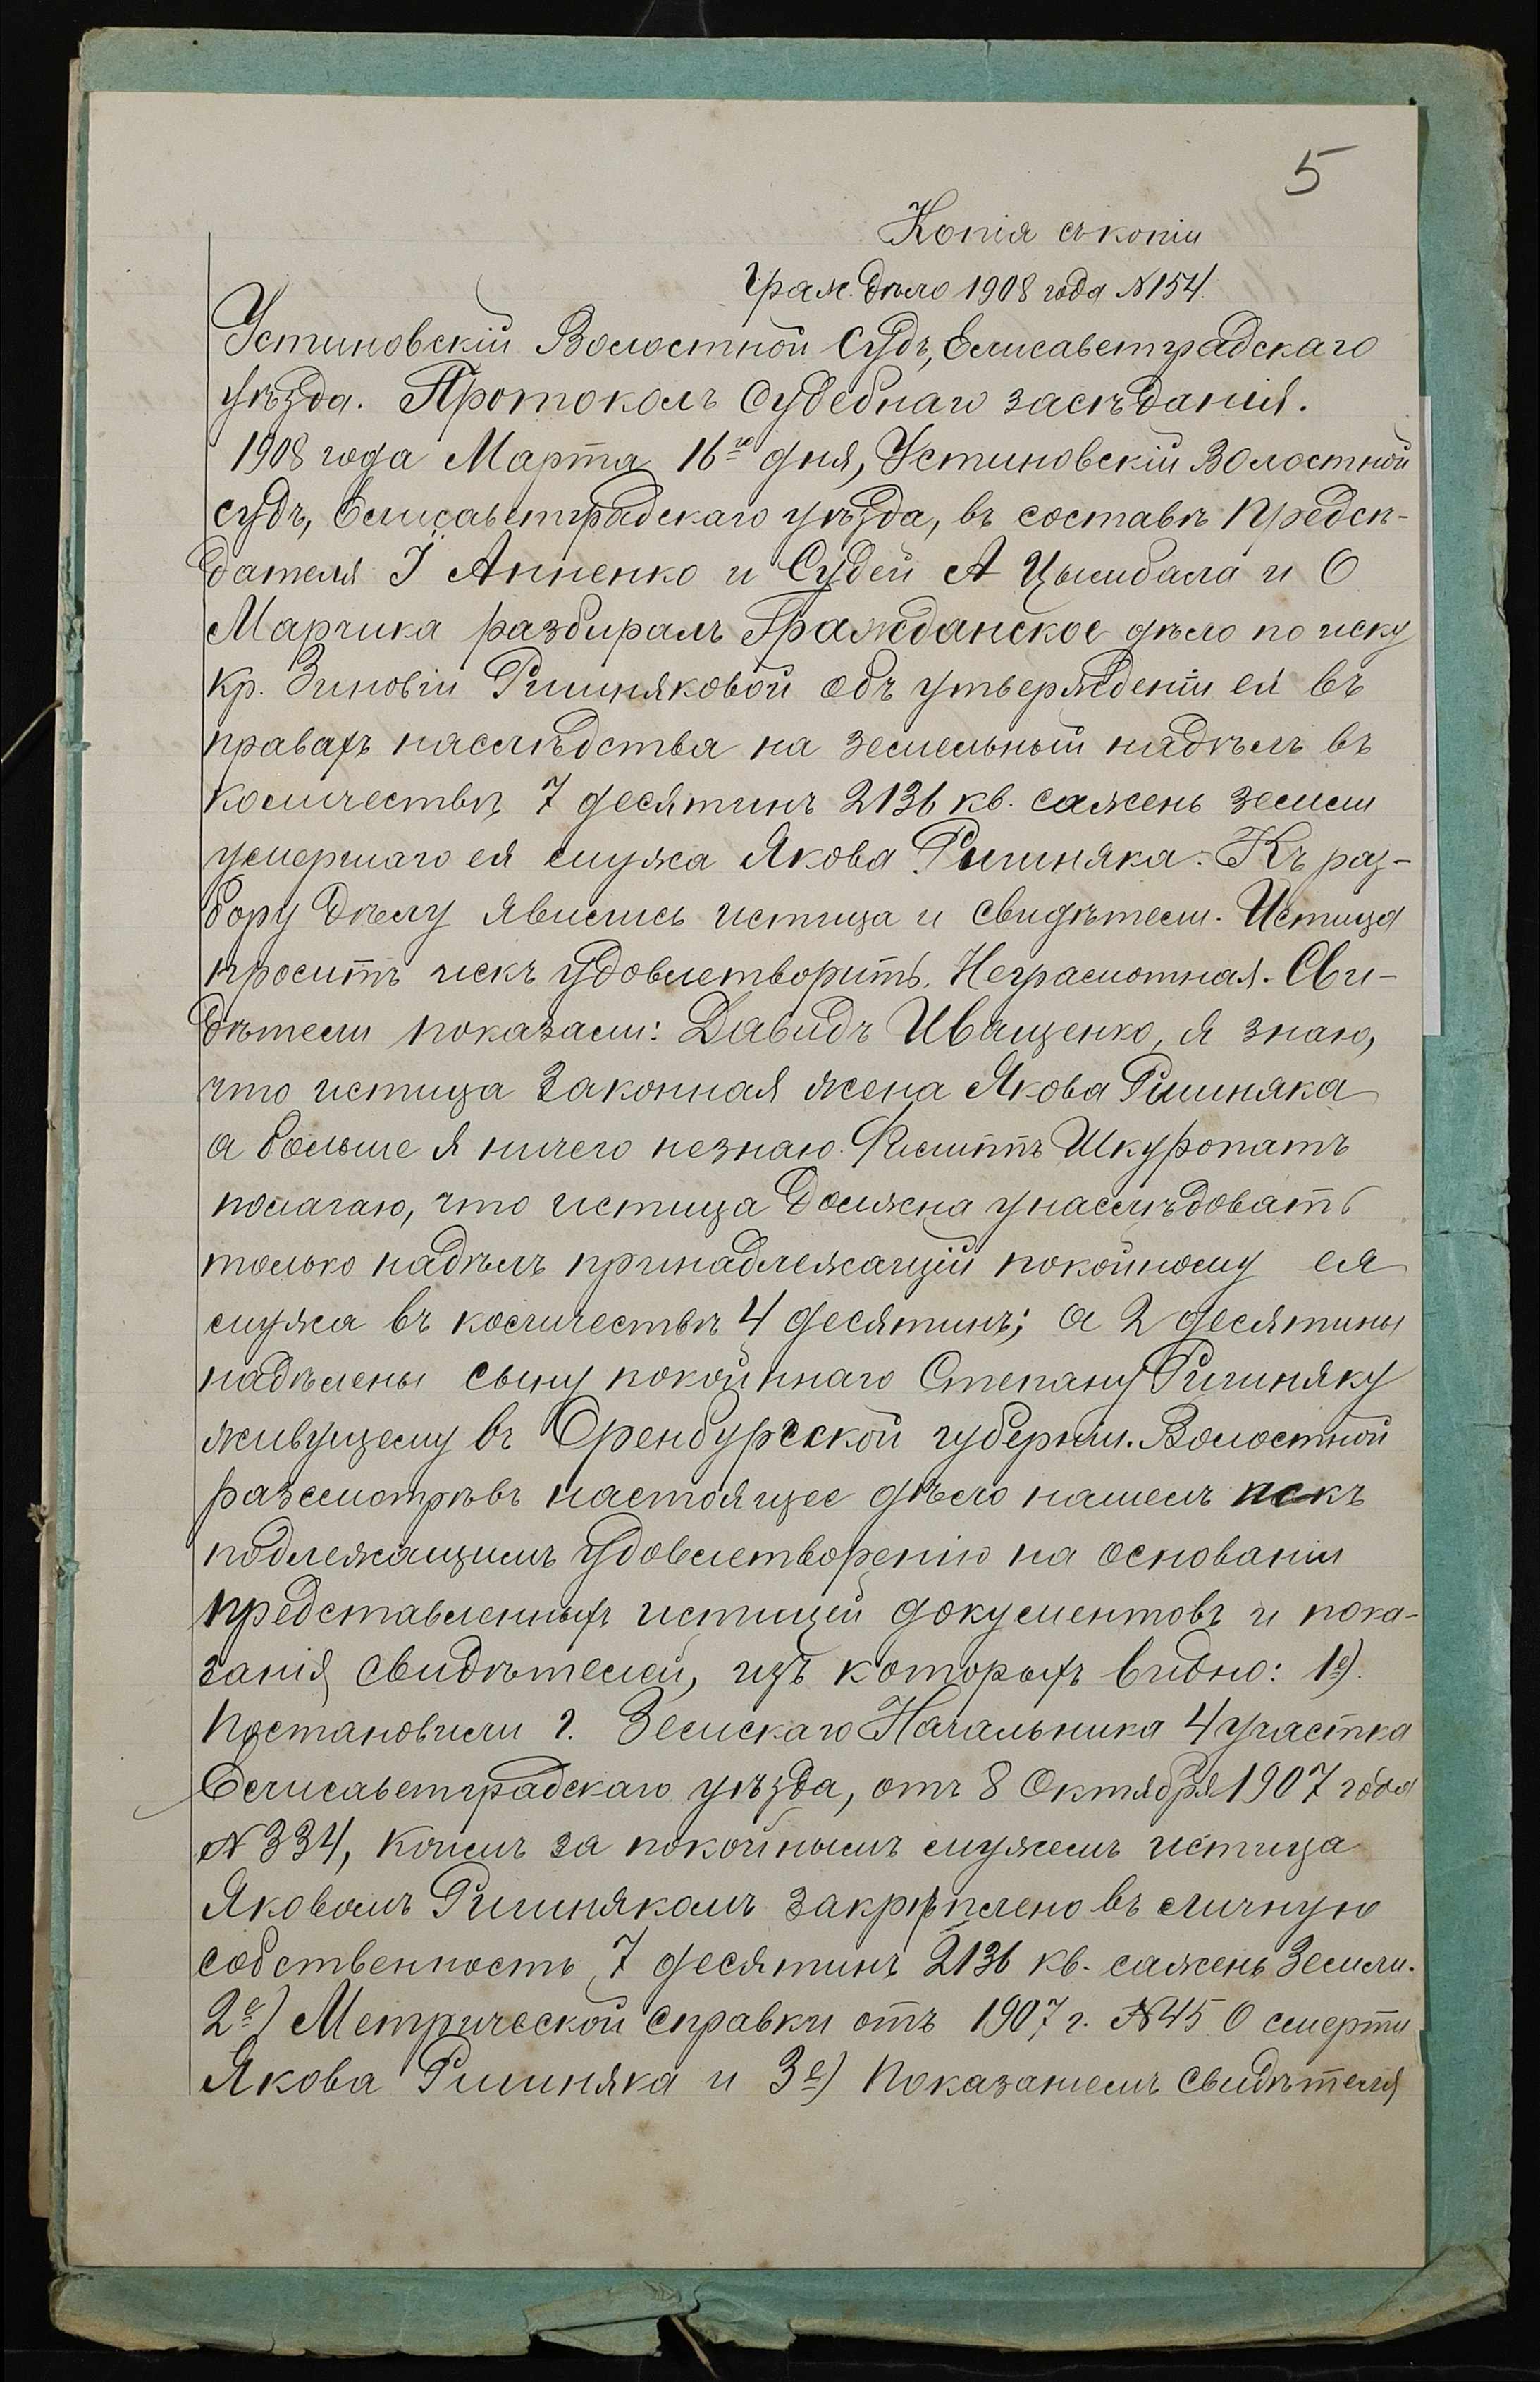 5
Копія съ копіи
Граж. дѣло 1908 года № 154.
Устиновскій Волостной Судъ, Елисаветградскаго
уѣзда. Протоколъ Судебнаго засѣданія.
1908 года Марта 16го дня, Устиновскій Волостной
судъ, Елисаветградскаго уѣзда, въ составѣ Предсѣ-
дателя І Анненко и Судей А Цымбала и О
Марчика разбиралъ Гражданское дѣло по иску
кр. Зиновіи Ришняковой объ утвержденіи ея въ
правахъ наслѣдства на земельный надѣлъ въ
количествѣ 7 десятинъ 2136 кв. сажень земли
умершаго ея мужа Якова Ришняка. Къ раз-
бору дѣлу явились истица и свидѣтели. Истица
проситъ искъ удовлетворить. Неграмотная. Сви-
дѣтели показали: Давидъ Иващенко, я знаю,
что истица законная жена Якова Ришняка
а больше я ничего незнаю. Филиппъ Шкуропатъ
полагаю, что истица должна унаслѣдовать
только надѣлъ принадлежащій покойному ея
мужа въ количествѣ 4 десятинъ; а 2 десятины
надѣлены сыну покойнаго Степану Ришняку
живущему въ Оренбургской губерніи. Волостной
разсмотрѣвъ настоящее дѣло нашелъ искъ
подлежащимъ удовлетворенію на основаніи
представленныхъ истицей документовъ и пока-
занія свидѣтелей, изъ которыхъ видно: 1е).
Постановили г. Земскаго Начальника 4 участка
Елисаветградскаго уѣзда, отъ 8 Октября 1907 года
№ 334, коимъ за покойнымъ мужемъ истица
Яковомъ Ришнякомъ закрѣплено въ личную
собственность 7 десятинъ 2136 кв. сажень земли.
2е) Метрической справки отъ 1907 г. № 45 О смерти
Якова Ришняка и 3е) Показаніемъ свидѣтеля